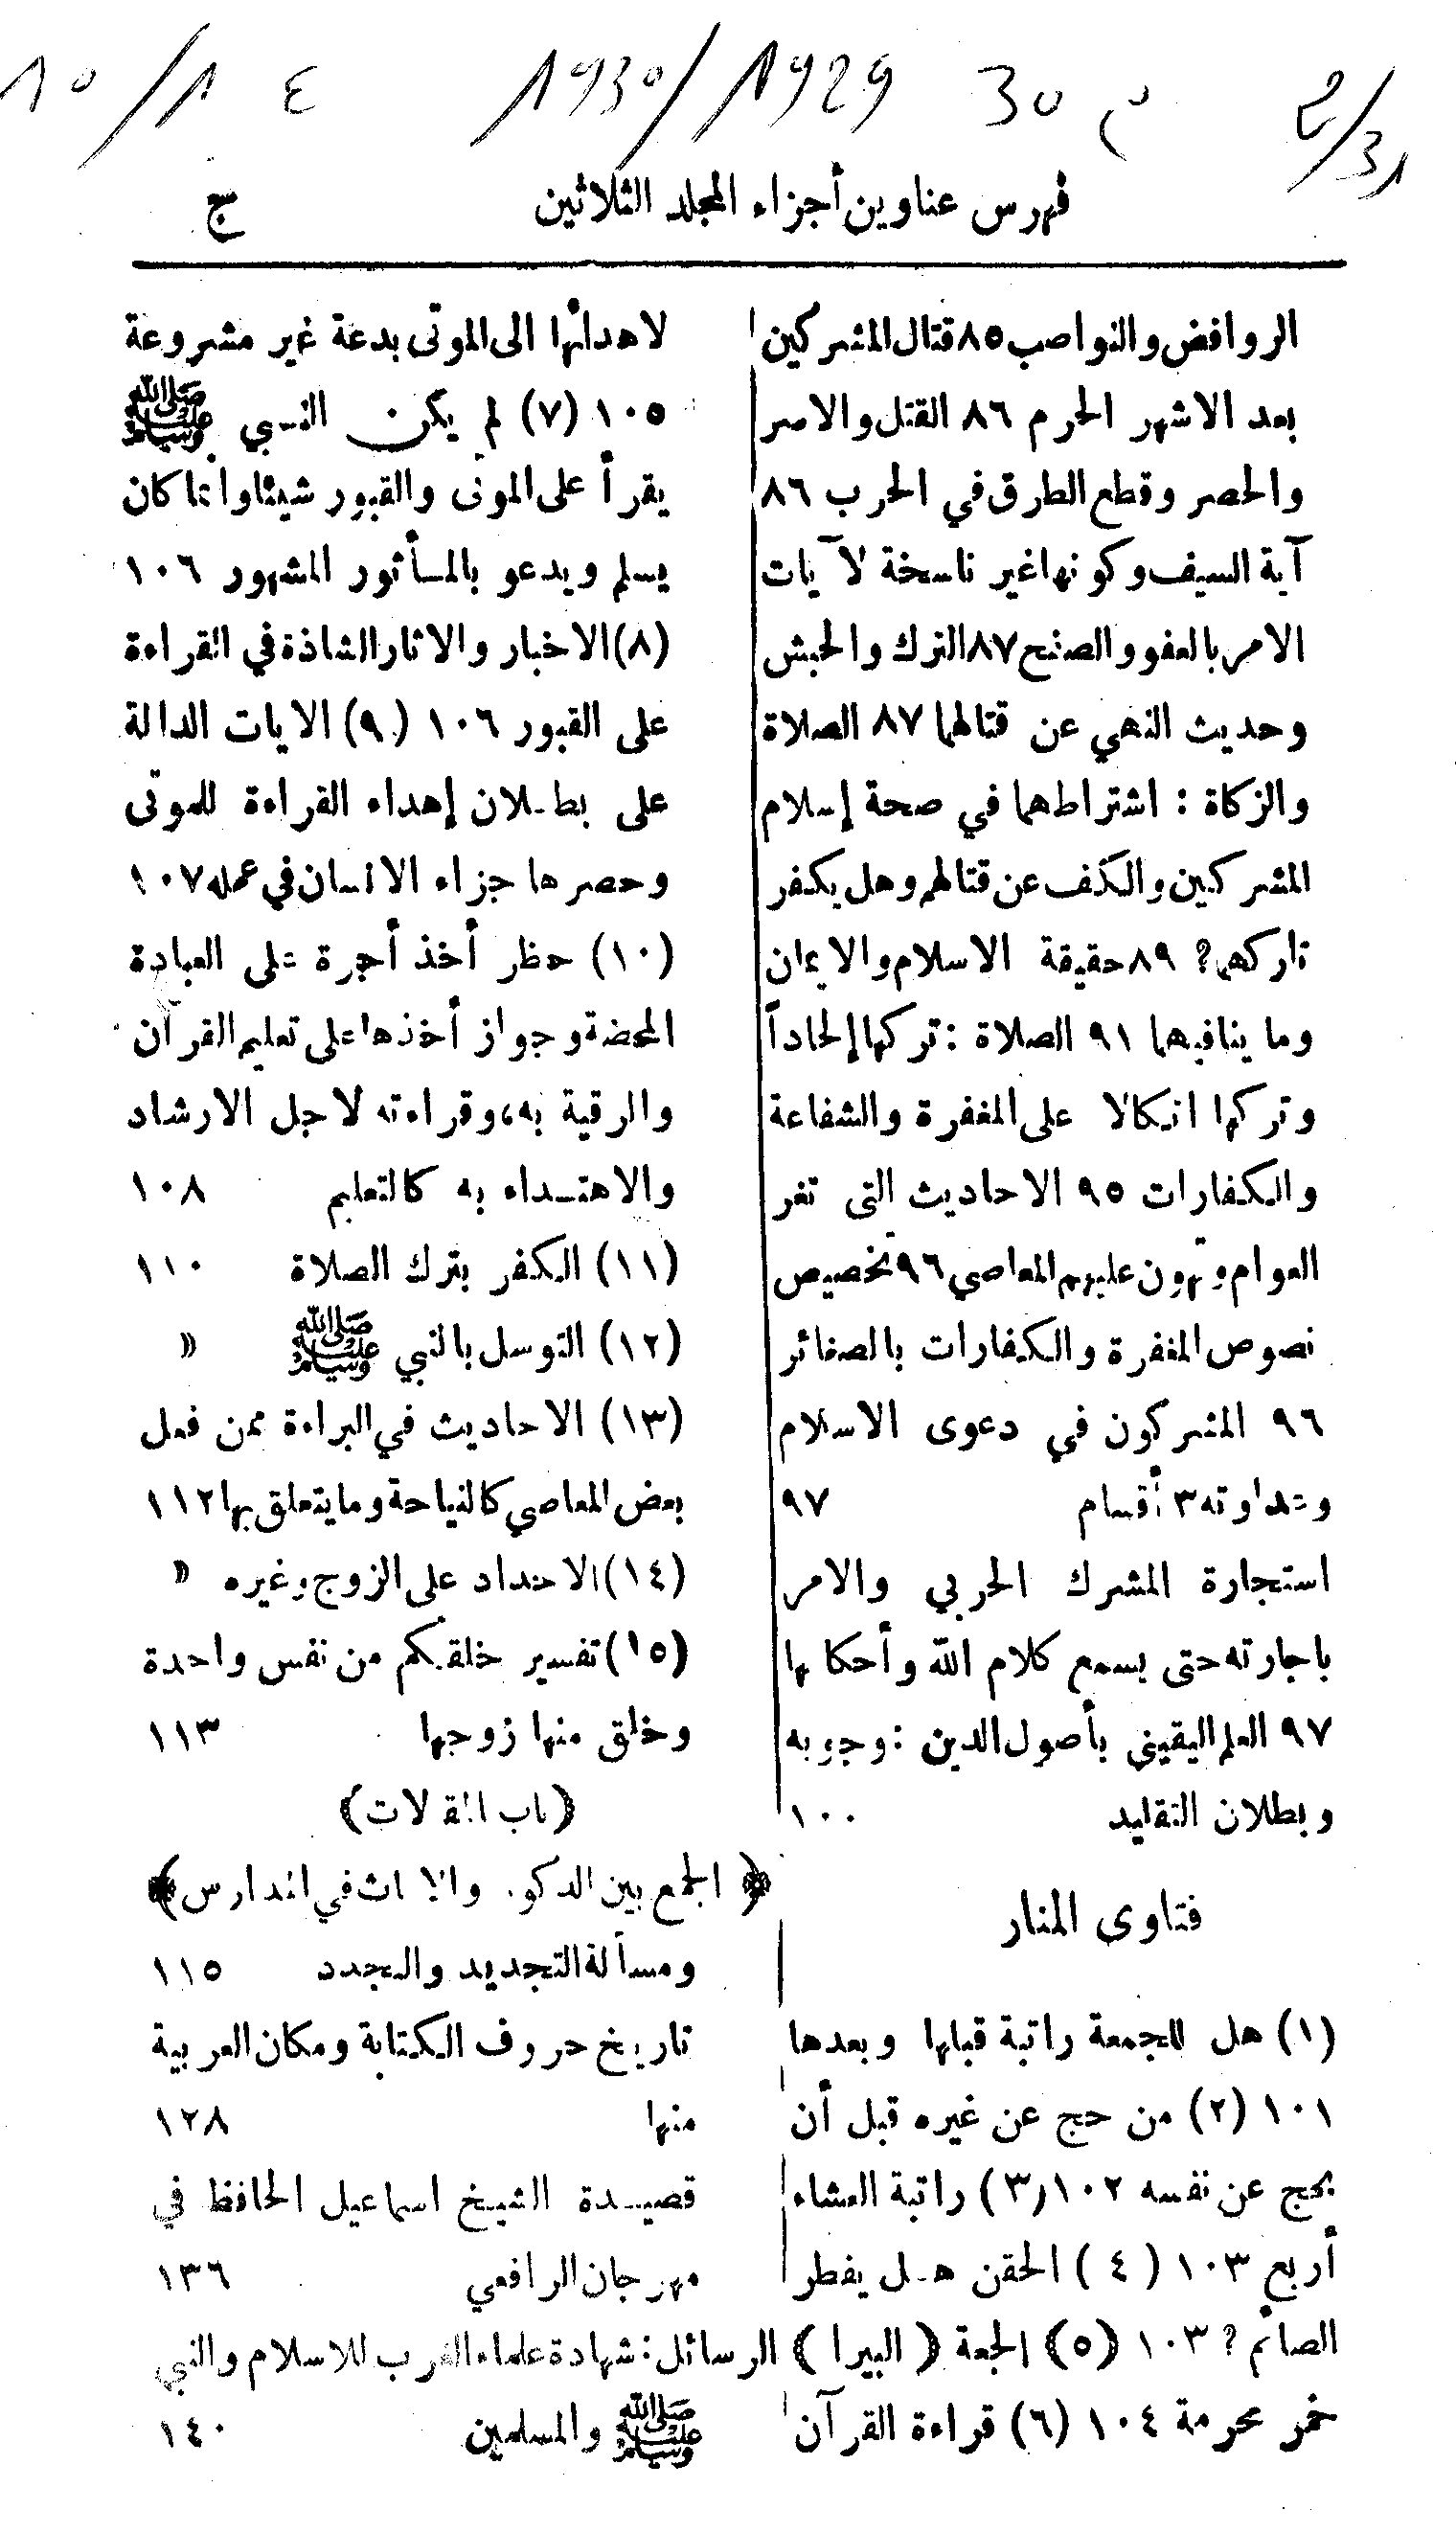 1930/1929 30 م
فهرس عناوين أجزاء المجلد الثلاثين ج
الروافض والنواصب ٨٥ قتال المشركين
بعد الاشهر الحرم ٨٦ القتل والاسر
والحصر وقطع الطرق في الحرب ٨٦
آية السيف وكونها غير ناسخة لآيات
الامر بالعفو والصفح ٨٧ الترك والحبش
وحديث النهي عن قتالهما ٨٧ الصلاة
والزكاة : اشتراطهما في صحة إسلام
المشركين والكف عن قتالهم وهل يكفر
تاركهما؟ ٨٩ حقيقة الاسلام والايمان
وما ينافيهما ٩١ الصلاة : تركها إلحاداً
وتركها اتكالا على المغفرة والشفاعة
والكفارات ٩٥ الاحاديث التى تغر
العوام وتهون عليهم المعاصي ٩٦ تخصيص
نصوص المغفرة والكفارات بالصغائر
٩٦ المشركون في دعوى الاسلام
وعداوته ٣ أقسام ٩٧
استجارة المشرك الحربي والامر
باجارته حتى يسمع كلام الله وأحكامها
٩٧ العلم اليقيني بأصول الدين : وجوبه
وبطلان التقليد ١٠٠
فتاوى المنار
(١) هل للجمعة راتبة قبلها وبعدها
١٠١ (٢) من حج عن غيره قبل أن
يحج عن نفسه ١٠٢ (٣) راتبة العشاء
أربع ١٠٣ (٤) الحقن هل يفطر
الصائم؟ ١٠٣ (٥) الجعة (البيرا)
خمر محرمة ١٠٤ (٦) قراءة القرآن
لاهدائها الى الموتى بدعة غير مشروعة
١٠٥ (٧) لم يكن النبي ﷺ
يقرأ على الموتى والقبور شيئا وانما كان
يسلم ويدعو بالمأثور المشهور ١٠٦
(٨) الاخبار والاثار الشاذة في القراءة
على القبور ١٠٦ (٩) الايات الدالة
على بطلان إهداء القراءة للموتى
وحصرها جزاء الانسان في عمله ١٠٧
(١٠) حظر أخذ أجرة على العبادة
المحضة وجواز أخذها على تعليم القرآن
والرقية به، وقراءته لاجل الارشاد
والاهتداء به كالتعليم ١٠٨
(١١) الكفر بترك الصلاة ١١٠
(١٢) التوسل بالنبي ﷺ »
(١٣) الاحاديث في البراءة ممن فعل
بعض المعاصي كالنياحة وما يتعلق بها ١١٢
(١٤) الاحداد على الزوج وغيره »
(١٥) تفسير خلقكم من نفس واحدة
وخلق منها زوجها ١١٣
﴿باب المقالات﴾
﴿الجمع بين الذكور والاناث في المدارس﴾
ومسألة التجديد والتجدد ١١٥
تاريخ حروف الكتابة ومكان العربية
منها ١٢٨
قصيدة الشيخ اسماعيل الحافظ في
مهرجان الرافعي ١٣٦
الرسائل : شهادة علماء الغرب للاسلام والنبي
ﷺ والمسلمين ١٤٠